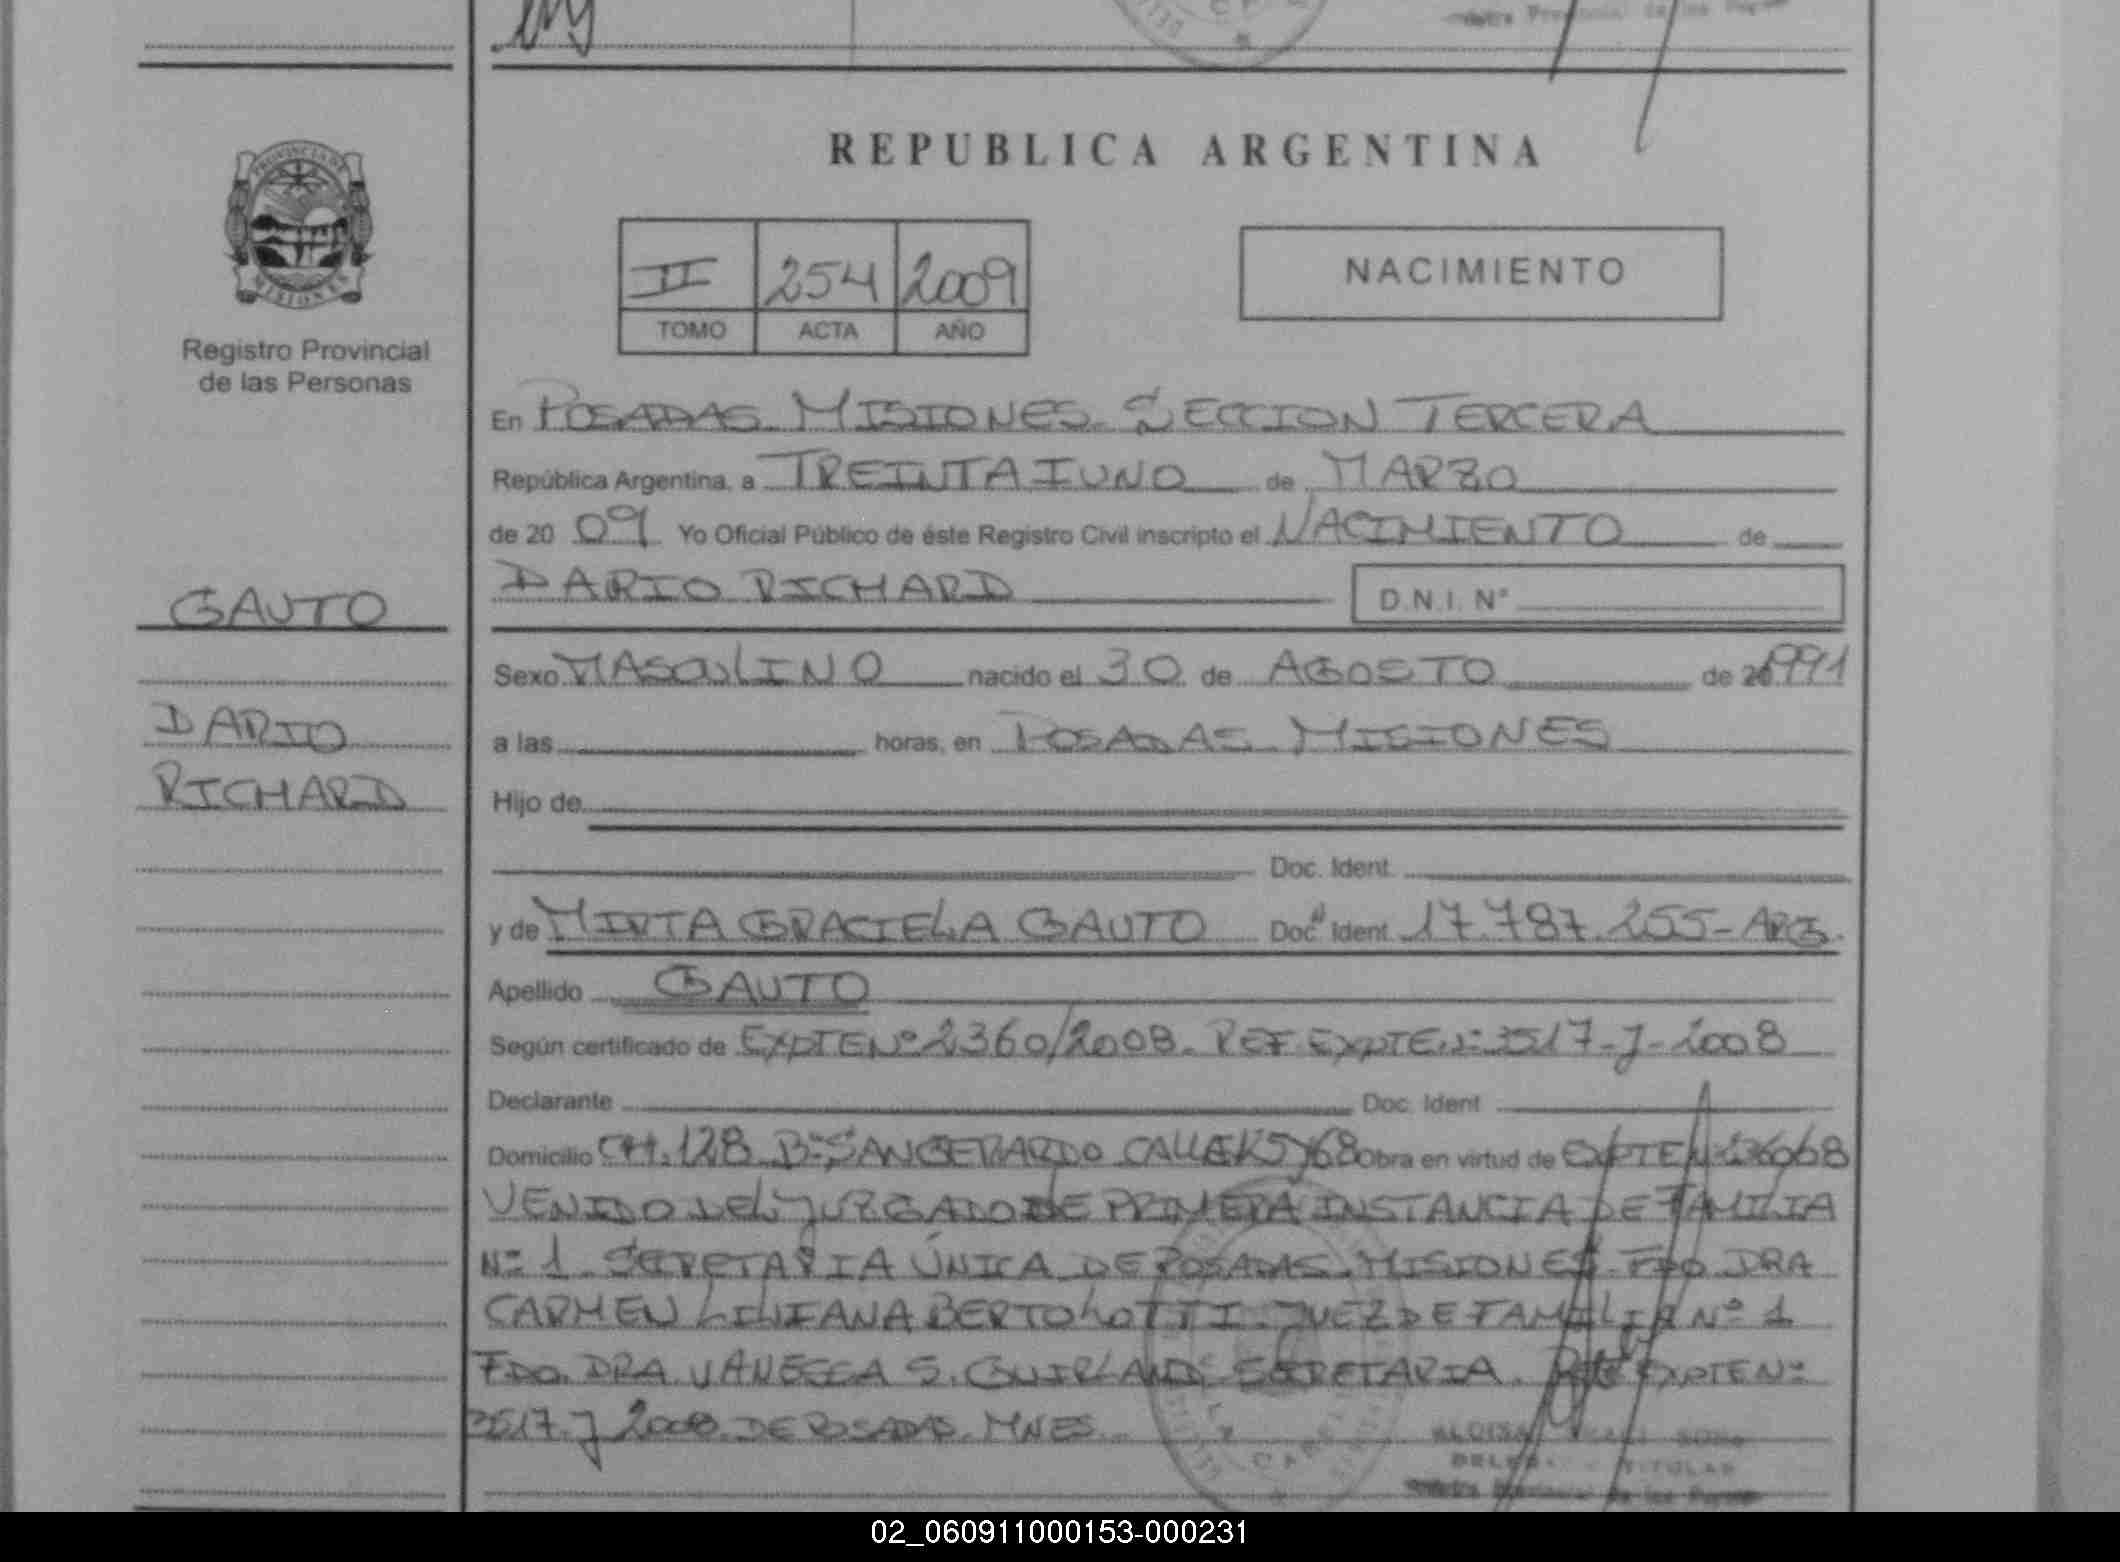 REPUBLICA ARGENTINA
PROVINCIA DE
MISIONES
II 254 2009
TOMO ACTA AÑO
NACIMIENTO
Registro Provincial
de las Personas
En POSADAS MISIONES. SECCION TERCERA
República Argentina, a TREINTAIUNO de MARZO
de 20 09 Yo Oficial Público de éste Registro Civil inscripto el NACIMIENTO de
DARIO RICHARD D.N.I. N°
GAUTO
DARIO
RICHARD
Sexo MASCULINO nacido el 30 de AGOSTO de 1991
a las horas, en POSADAS MISIONES
Hijo de
Doc. Ident.
y de MIRTA GRACIELA GAUTO Doc. Ident. 17.787.255- ARG.
Apellido GAUTO
Según certificado de EXPTE Nº 2360/2008. REF EXPTE Nº 3517-J-2008
Declarante Doc. Ident
Domicilio CH. 128 Bº SAN GERARDO CALLE K5 y 68 Obra en virtud de EXPTE Nº
VENIDO DEL JUZGADO DE PRIMERA INSTANCIA DE FAMILIA
Nº 1 SECRETARIA ÚNICA DE POSADAS. MISIONES. FDO DRA
CARMEN LILIANA BERTOLOTTI. JUEZ DE FAMILIA Nº 1
FDO. DRA. VANESSA S. GUIRLAND SECRETARIA. REF EXPTE Nº
3517. J 2008 DE POSADAS. MNES.
TITULAR
02_060911000153-000231